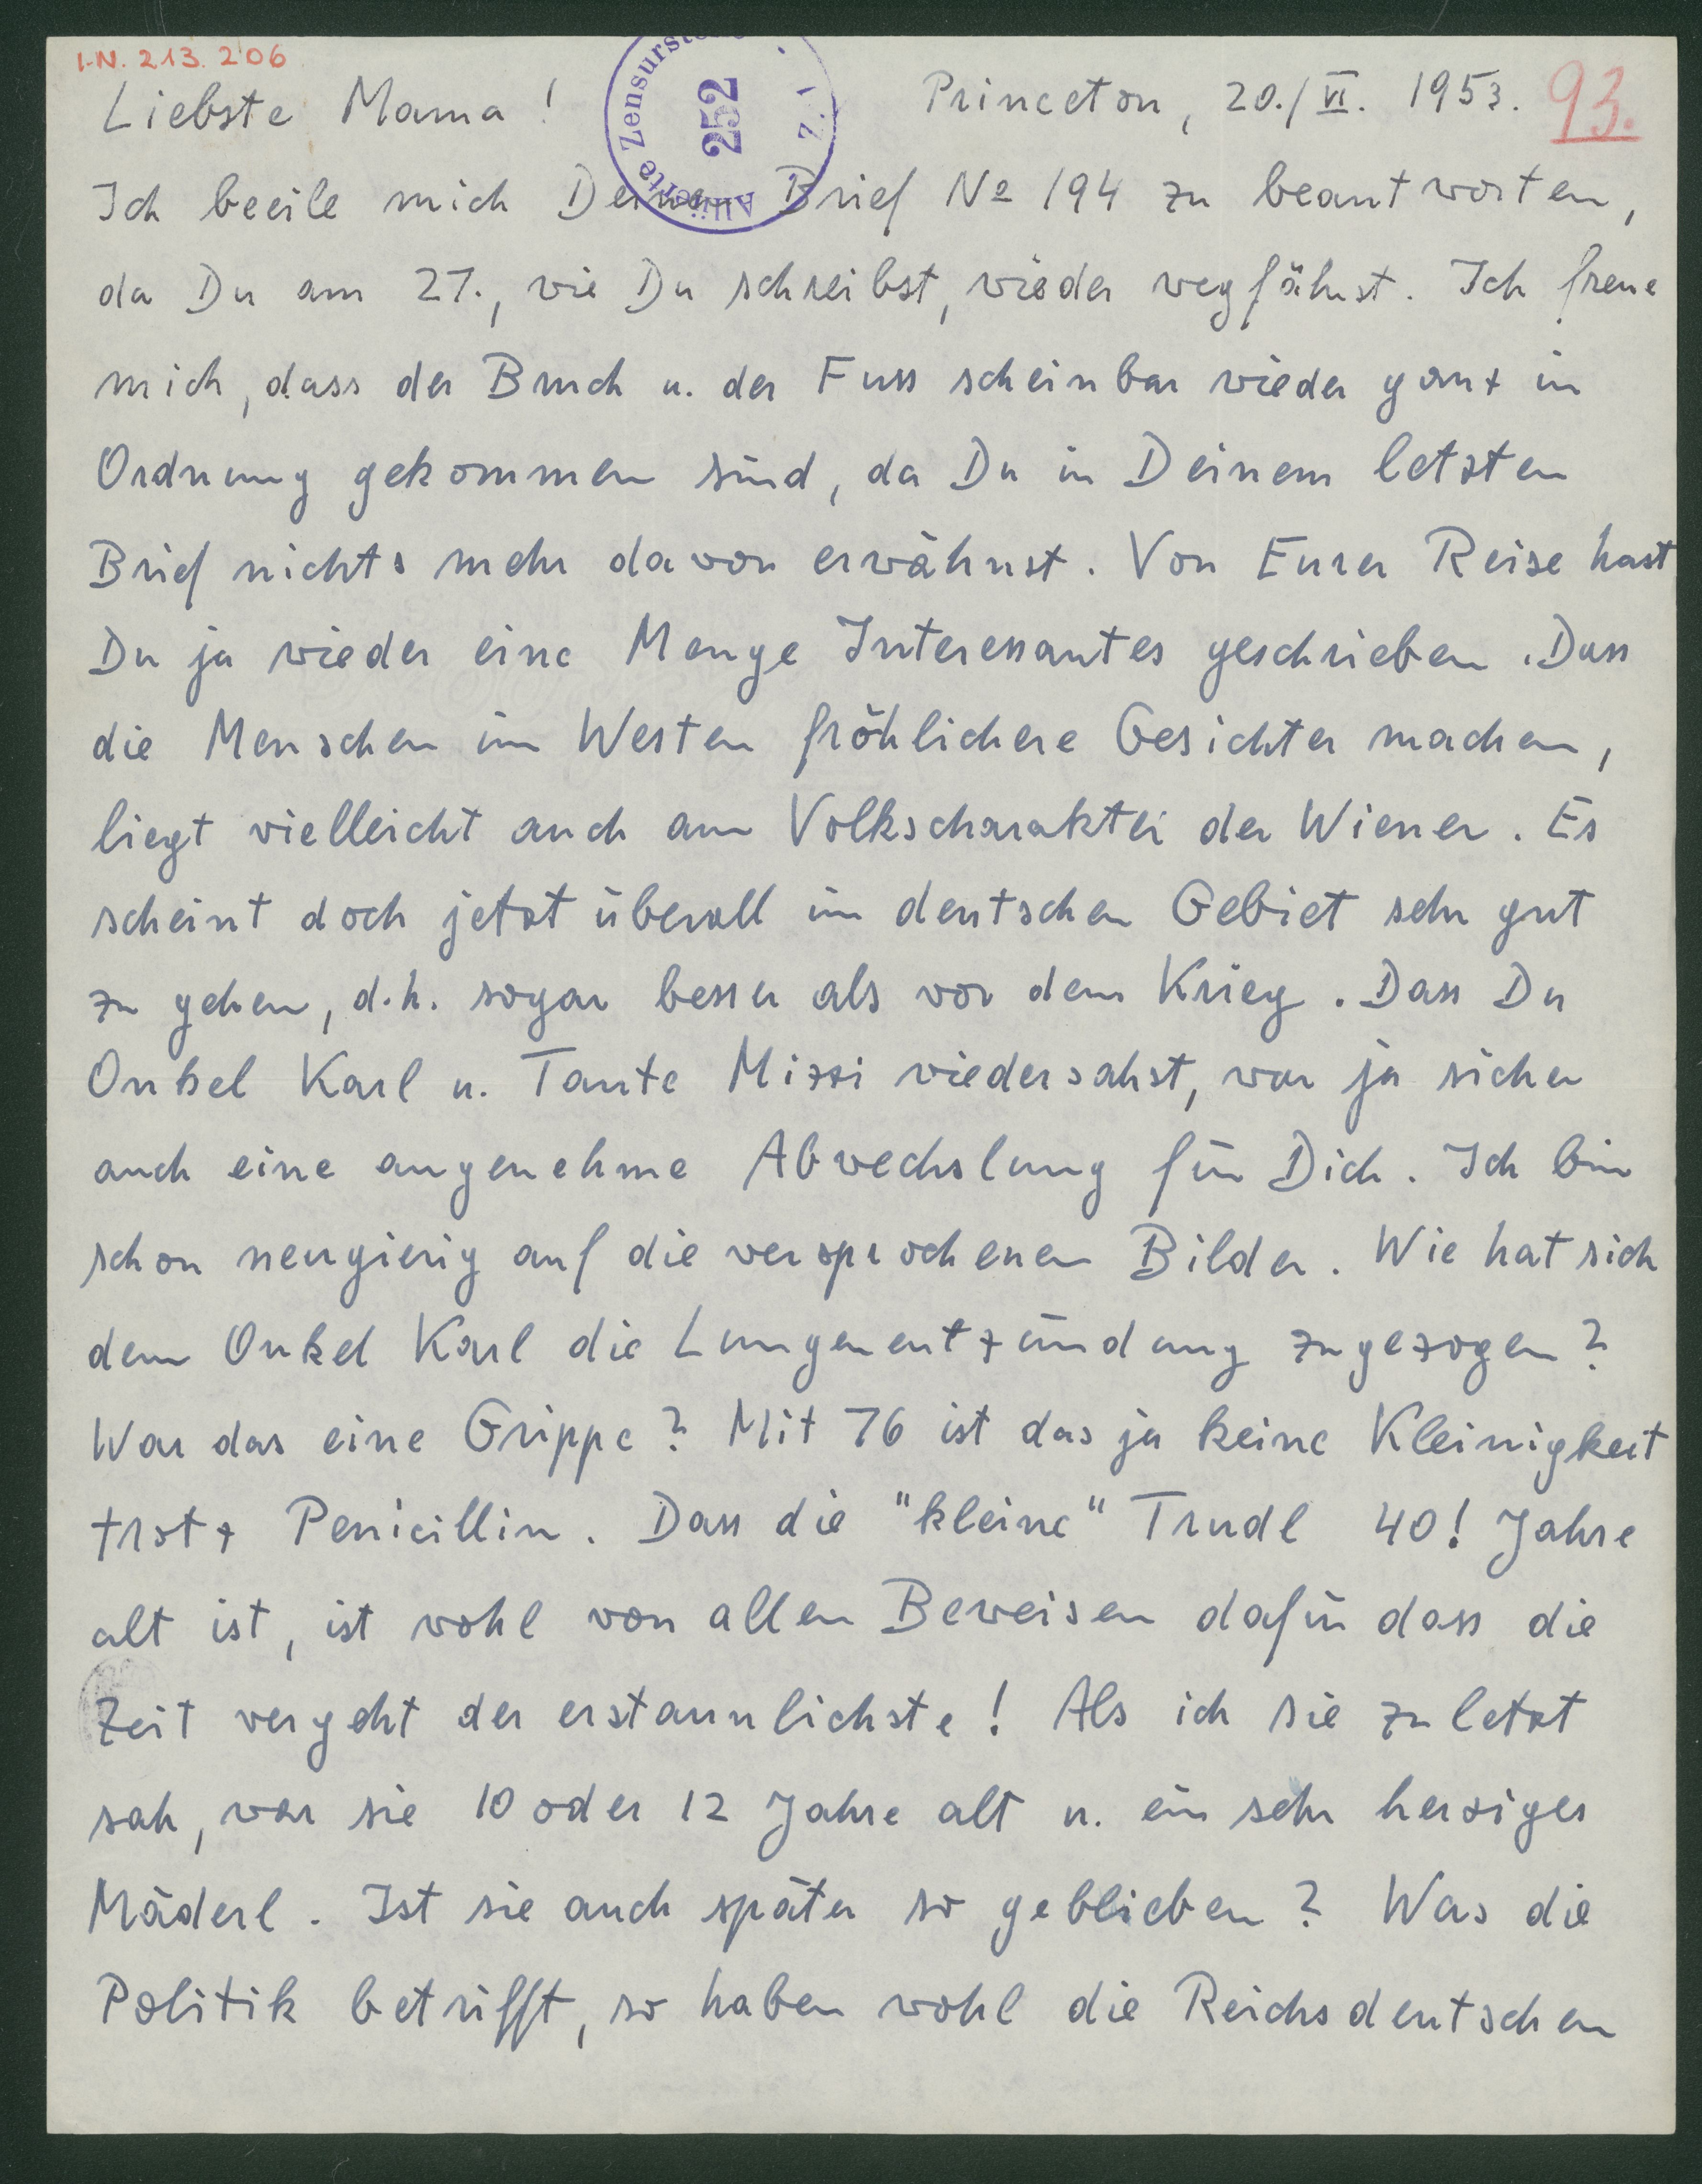 I.N. 213.206
Alliierte Zensurste
252
Liebste Mama! Princeton, 20./VI. 1953. 93.
Ich beeile mich Deinen Brief No 194 zu beantworten,
da Du am 27., wie Du schreibst, wieder wegfährst. Ich freue
mich, dass der Bruch u. der Fuss scheinbar wieder ganz in
Ordnung gekommen sind, da Du in Deinem letzten
Brief nichts mehr davon erwähnst. Von Eurer Reise hast
Du ja wieder eine Menge Interessantes geschrieben. Dass
die Menschen im Westen fröhlichere Gesichter machen,
liegt vielleicht auch am Volkscharakter der Wiener. Es
scheint doch jetzt überall im deutschen Gebiet sehr gut
zu gehen, d.h. sogar besser als vor dem Krieg. Dass Du
Onkel Karl u. Tante Mizzi wiedersahst, war ja sicher
auch eine angenehme Abwechslung für Dich. Ich bin
schon neugierig auf die versprochenen Bilder. Wie hat sich
denn Onkel Karl die Lungenentzündung zugezogen?
War das eine Grippe? Mit 76 ist das ja keine Kleinigkeit
trotz Penicillin. Dass die "kleine" Trudl 40! Jahre
alt ist, ist wohl von allen Beweisen dafür dass die
Zeit vergeht der erstaunlichste! Als ich sie zuletzt
sah, war sie 10 oder 12 Jahre alt u. ein sehr herziges
Mäderl. Ist sie auch später so geblieben? Was die
Politik betrifft, so haben wohl die Reichsdeutschen